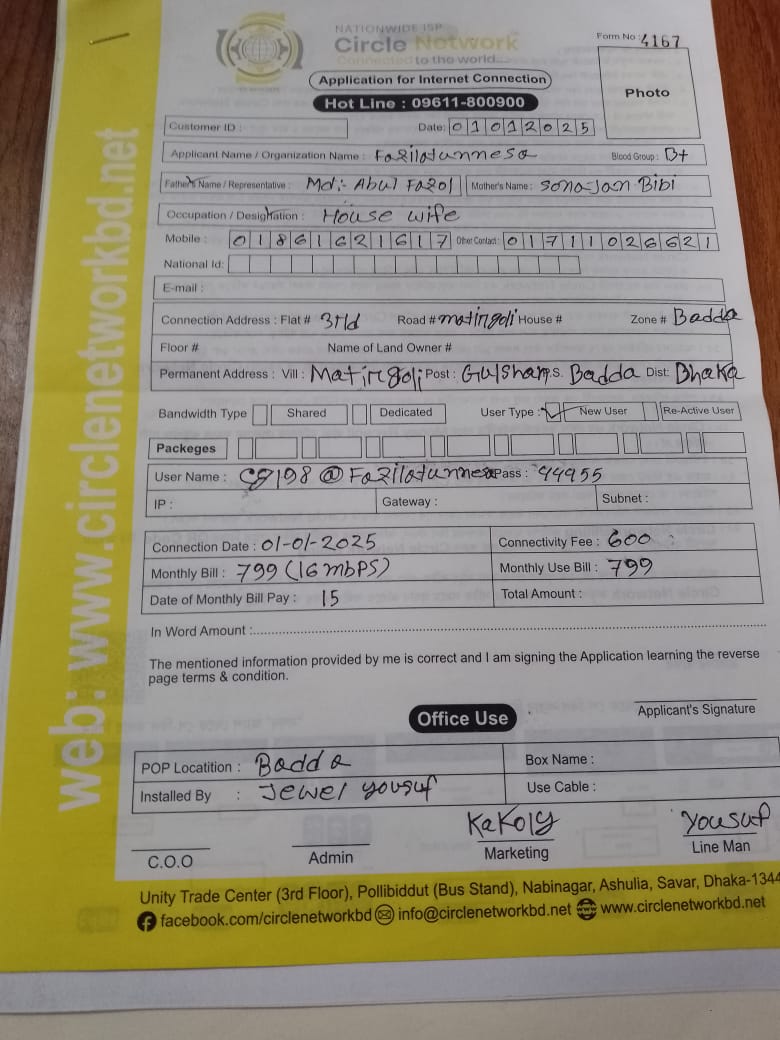 NATIONWIDE ISP
Circle Network
Connected to the world...
Form No : 4167
Application for Internet Connection
Hot Line : 09611-800900
Photo
Customer ID : Date: 01012025
Applicant Name / Organization Name : Fazilatunnesa Blood Group : B+
Father's Name / Representative : Md:- Abul Fazol Mother's Name : Sona-Jan Bibi
Occupation / Designation : House wife
Mobile : 01861621617 Other Contact : 01711026621
National Id:
E-mail :
Connection Address : Flat # 3rd Road # matirgoli House # Zone # Badda
Floor # Name of Land Owner #
Permanent Address : Vill : Matirgoli Post : Gulshan P.S. Badda Dist: Dhaka
Bandwidth Type Shared Dedicated User Type : New User Re-Active User
Packeges
User Name : @ Fazilatunnesa Pass : 44955
IP : Gateway : Subnet :
Connection Date : 01-01-2025 Connectivity Fee : 600
Monthly Bill : 799 (16 mbPS) Monthly Use Bill : 799
Date of Monthly Bill Pay : 15 Total Amount :
In Word Amount :
The mentioned information provided by me is correct and I am signing the Application learning the reverse
page terms & condition.
Applicant's Signature
Office Use
POP Locatition : Badda Box Name :
Installed By : Jewel Yousuf Use Cable :
KaKoly Yousuf
C.O.O Admin Marketing Line Man
Unity Trade Center (3rd Floor), Pollibiddut (Bus Stand), Nabinagar, Ashulia, Savar, Dhaka-1344
facebook.com/circlenetworkbd info@circlenetworkbd.net www.circlenetworkbd.net
web: www.circlenetworkbd.net